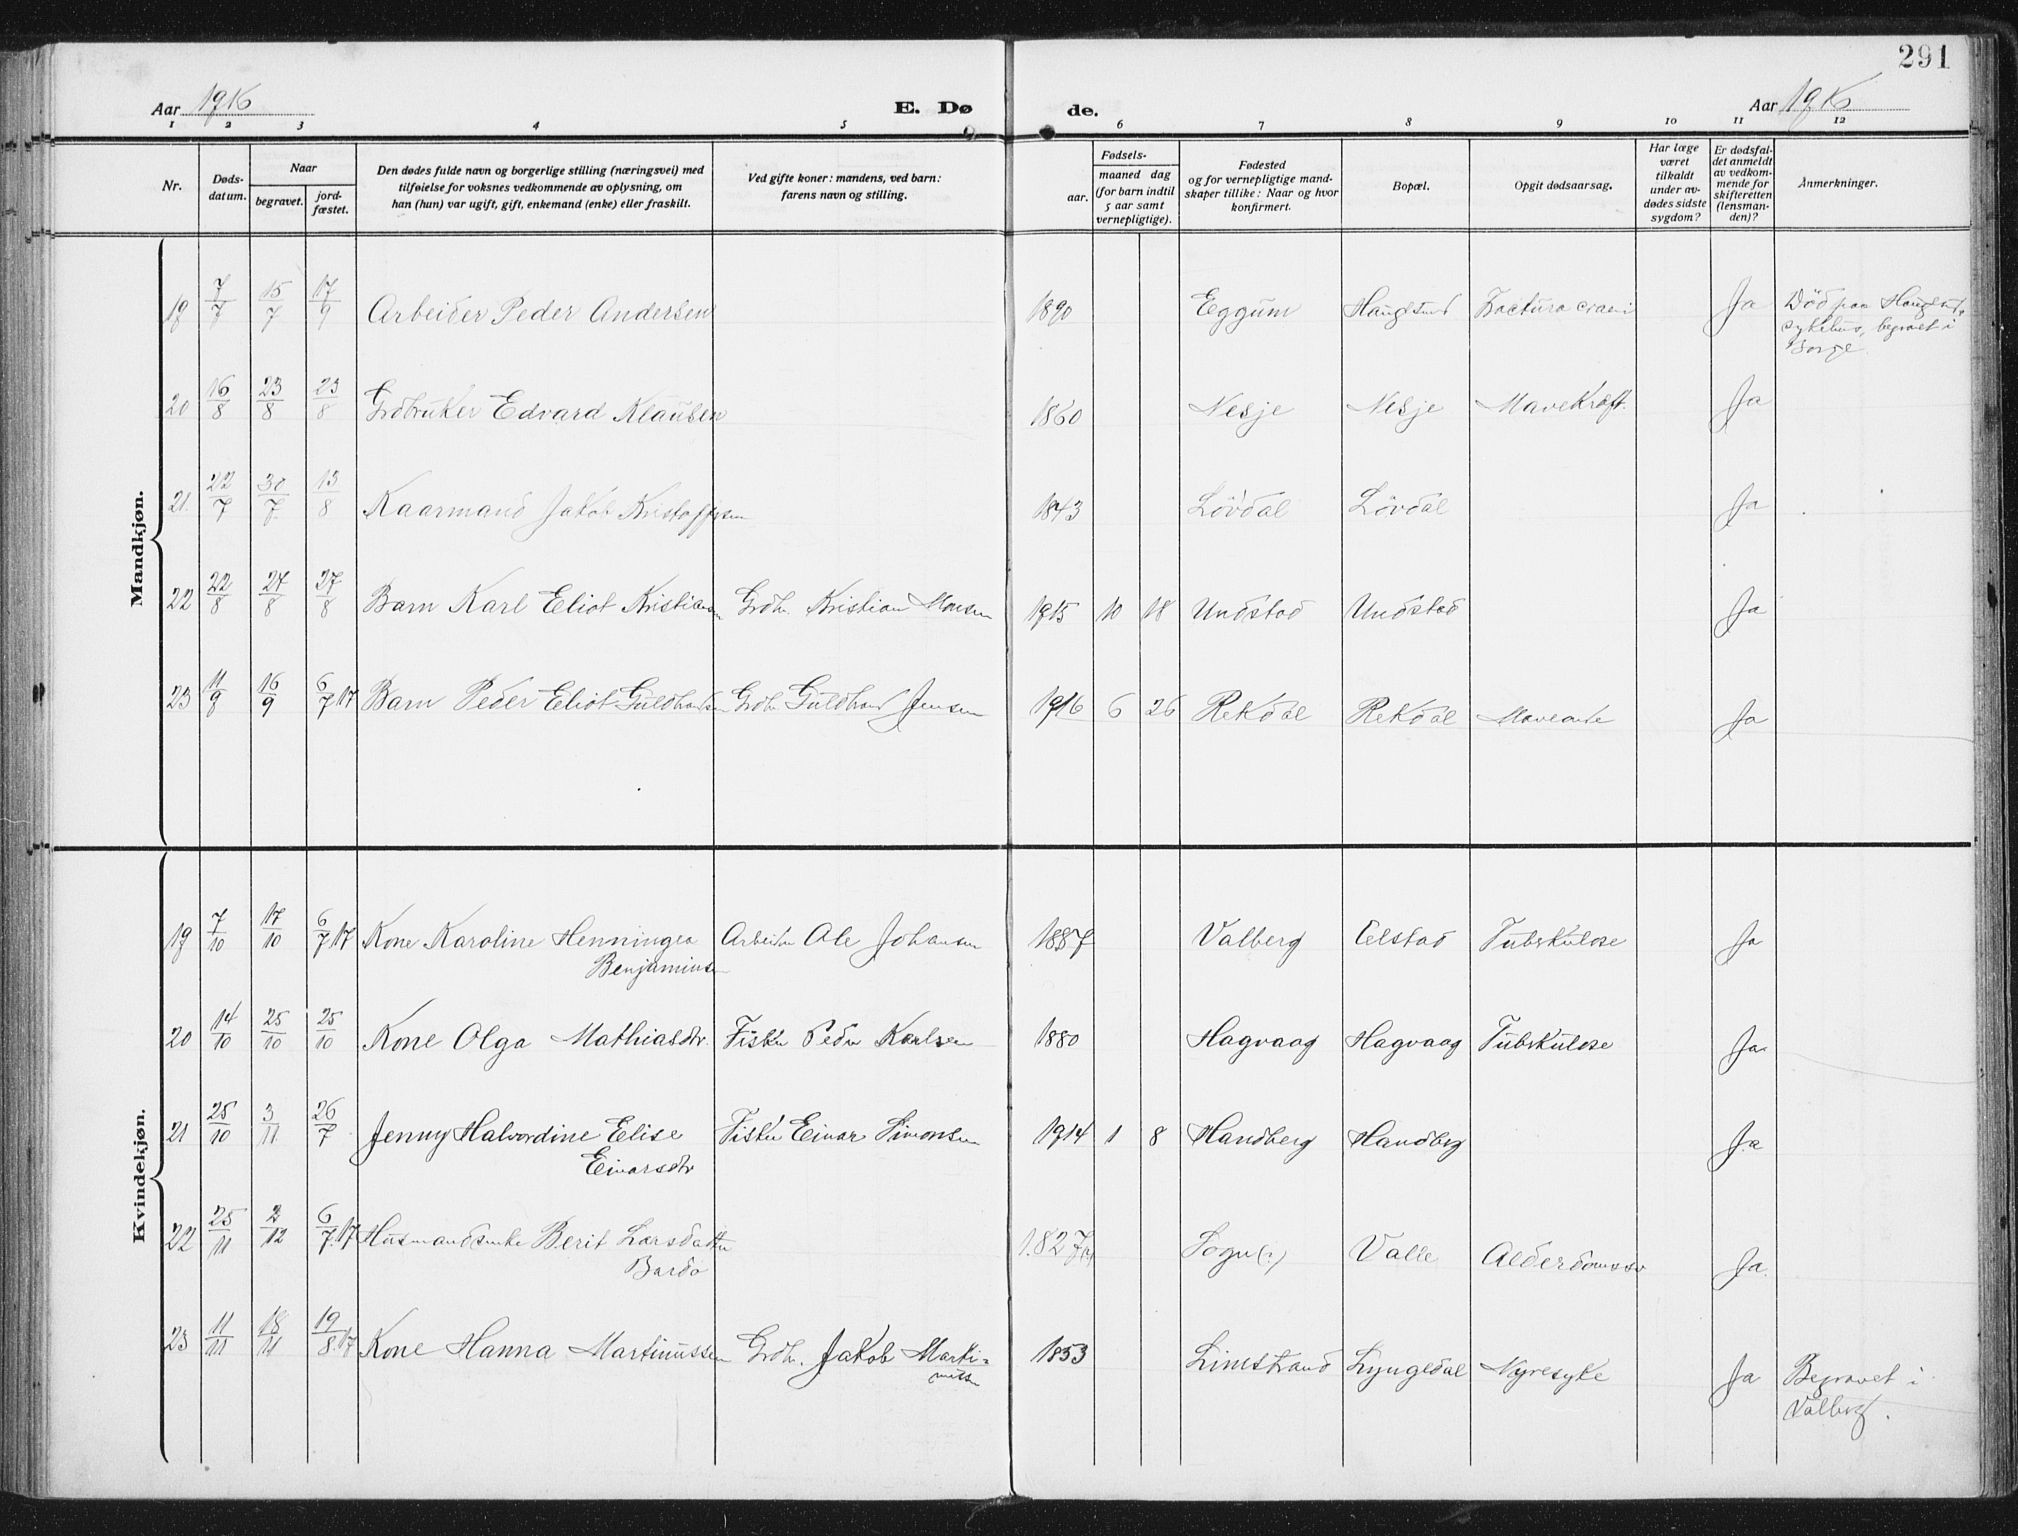 291
Aar 1916 E. Dø de. Aar 1916
1 2 3 4 5 6 7 8 9 10 11 12
Nr.
Døds-
datum.
Naar
begravet.
jord-
fæstet.
Den dødes fulde navn og borgerlige stilling (næringsvei) med
tilføielse for voksnes vedkommende av oplysning, om
han (hun) var ugift, gift, enkemand (enke) eller fraskilt.
Ved gifte koner: mandens, ved barn:
farens navn og stilling.
Fødsels-
aar.
maaned dag
(for barn indtil
5 aar samt
vernepligtige).
Fødested
og for vernepligtige mand-
skaper tillike: Naar og hvor
konfirmert.
Bopæl.
Opgit dødsaarsag.
Har læge
været
tilkaldt
under av-
dødes sidste
sygdom?
Er dødsfal-
det anmeldt
av vedkom-
mende for
skifteretten
(lensman-
den)?
Anmerkninger.
Mandkjøn.
19 7/7 15/7 17/9 Arbeider Peder Andersen 1890 Eggum Haugesund Ja Död paa
sykehus, begravet i
Borge.
20 16/8 23/8 23/8 Grdbruker Edvard Klausen 1860 Nesje Nesje Mavekræft. Ja
21. 22/7 30/7 13/8 Kaarmand Jakob Kristoffersen 1843 Lövdal Lövdal Ja
22 22/8 27/8 27/8 Barn Karl Eliot Kristiansen Grdbr. Kristian Monsen 1915 10 18 Undstad Undstad Ja
23 11/9 16/9 6/7 17 Barn Peder Eliot Guldbrandsen Grdbr Guldbrand Jensen 1916 6 26 Rekdal Rekdal Ja
Kvindekjøn.
19 7/10 17/10 6/7 17 Kone Karoline Henningea Arbeider Ole Johansen 1887 Valberg Eelstad Tubskulose Ja
Benjaminsen
20 14/10 25/10 25/10 Kone Olga Mathiasdtr. Fisker Peder Karlsen 1880 Hagvaag Hagvaag Tubskulose Ja
21 25/10 3/11 26/7 Jenny Halvordine Elise Fisker Einar Simonsen 1914 1 8 Handberg Handberg Ja
Einarsdtr
22 25/11 2/12 6/7. 17 Husmandsenke Berit Larsdatter 1827(?) Sogn(?) Valle Alderdomssv Ja.
Bardo
23 11/11 18/11 19/8 17 Kone Hanna Martinussen Grdbr. Jakob Marti-
nussen 1853 Limstrand Lyngedal Nyresyke Ja Begravet i
Valberg.